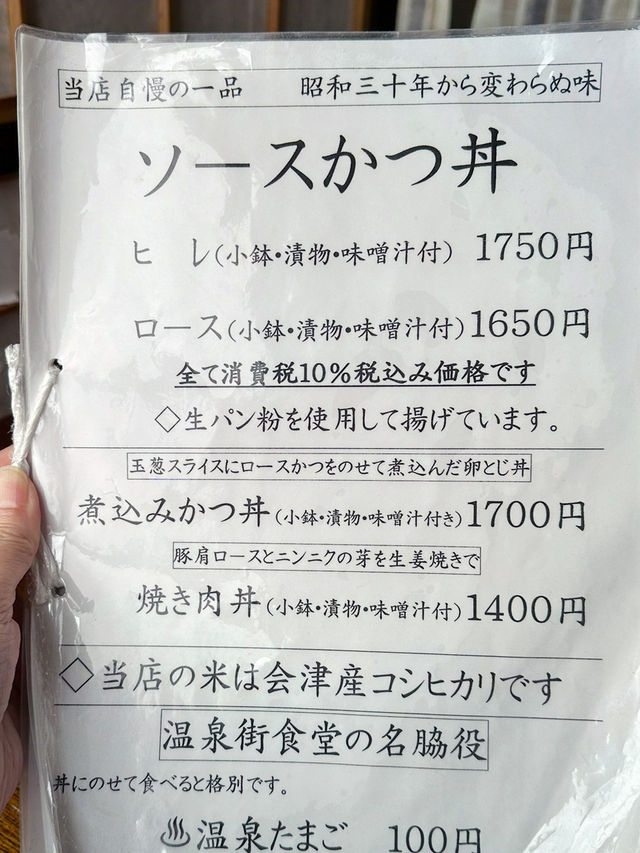 当店自慢の一品 昭和三十年から変わらぬ味
ソースかつ丼
ヒレ(小鉢・漬物・味噌汁付) 1750円
ロース(小鉢・漬物・味噌汁付)1650円
全て消費税10%税込み価格です
◇生パン粉を使用して揚げています。
玉葱スライスにロースかつをのせて煮込んだ卵とじ丼
煮込みかつ丼(小鉢・漬物・味噌汁付き)1700円
豚肩ロースとニンニクの芽を生姜焼きで
焼き肉丼(小鉢・漬物・味噌汁付)1400円
◇当店の米は会津産コシヒカリです
温泉街食堂の名脇役
丼にのせて食べると格別です。
♨温泉たまご 100円